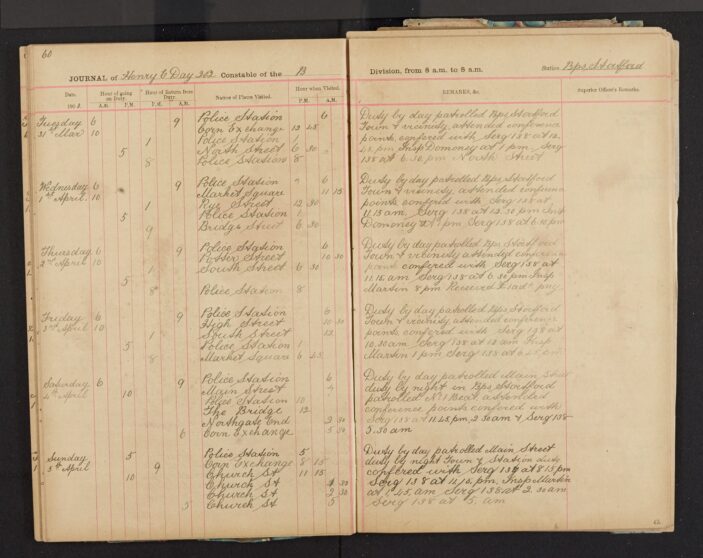 60
JOURNAL of Henry C Day 202 Constable of the B
Date. 190
Hour of going on Duty. A.M. P.M.
Hour of Return from Duty. P.M. A.M.
Names of Places Visited.
Hour when Visited. P.M. A.M.
Tuesday 6 9 Police Station 6
31st Mar 10 Corn Exchange 12 45
1 Police Station
5 North Street 6 30
8 Police Station 8
Wednesday 6 9 Police Station 6
1st April 10 Market Square 11 15
1 Rye Street 12 30
5 Police Station 1
9 Bridge Street 6 30
Thursday 6 9 Police Station 6
2nd April 10 Potter Street 10 30
1 South Street 6 30
5
8 Police Station 8
Friday 6 9 Police Station 6
3rd April 10 High Street 10 30
1 South Street 12
5 Police Station 1
8 Market Square 6 45
Saturday 6 9 Police Station 6
4th April 10 Main Street
Police Station 10
The Bridge 12
Northgate End 2 30
6 Corn Exchange 5 30
Sunday 5 Police Station 5
5th April 9 Corn Exchange 8 15
10 Church St 11 15
Church St 1
Church St 2 30
5 Church St 5
Division, from 8 a.m. to 8 a.m. Station Bps Stortford
REMARKS, &c. Superior Officer's Remarks.
Duty by day patrolled Bps Stortford
Town & vicinity, attended conference
points, confered with Serg 138 at 12.
45 pm Insp Domoney at 1 pm. Serg
138 at 6.30 pm North Street
Duty by day patrolled Bps Stortford
Town & vicinity, attended conference
points confered with Serg 138 at
11.15 am Serg 138 at 12.30 pm Insp
Domoney at 1 pm Serg 138 at 6.30 pm
Duty by day patrolled Bps Stortford
Town & vicinity attended conference
points confered with Serg 138 at
am Serg 138 at 6.30 pm Insp
Martin 8 pm Received pay
Duty by day patrolled Bps Stortford
Town & vicinity, attended conference
points, confered with Serg 138 at
10.30 am Serg 138 at 12 am Insp
Martin 1 pm Serg 138 at 6.45 pm
Duty by day patrolled Main Street
duty by night in Bps Stortford
patrolled No 1 Beat attended
conference points confered with
Serg 138 at 11.45 pm 2.30 am & Serg 138
5.30 am
Duty by day patrolled Main Street
duty by night Town & Station
confered with Serg 138 at 8.15 pm
Serg 138 at 11.15 pm. Insp Martin
at 1.45 am Serg 138 at 2.30 am
Serg 138 at 5 am